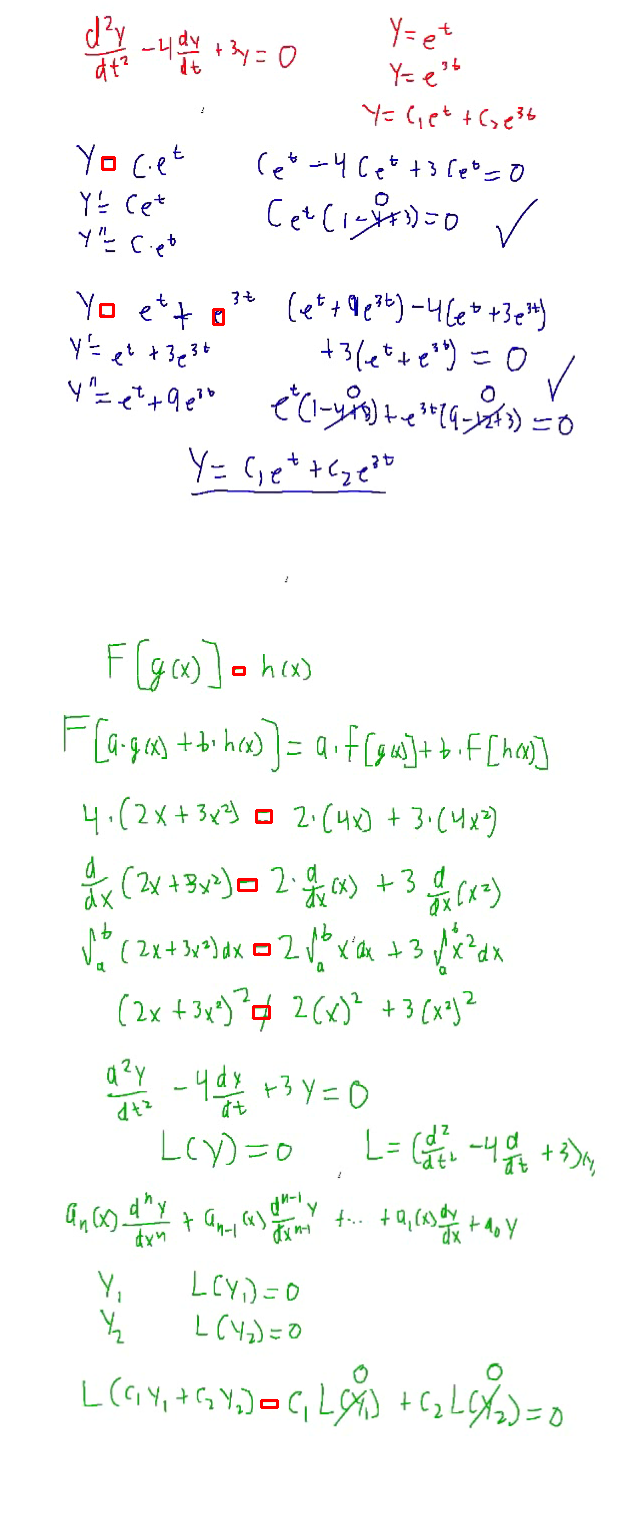 d²y/dt² - 4 dy/dt + 3y = 0
y = e^t
y = e^{3t}
y = c₁e^t + c₂e^{3t}
y = c·e^t
y' = ce^t
y'' = c·e^t
ce^t - 4ce^t + 3ce^t = 0
ce^t(1-4+3) = 0 ✓
0
y = e^t + e^{3t}
y' = e^t + 3e^{3t}
y'' = e^t + 9e^{3t}
(e^t + 9e^{3t}) - 4(e^t + 3e^{3t})
+ 3(e^t + e^{3t}) = 0 ✓
0 0
e^t(1-4+3) + e^{3t}(9-12+3) = 0
y = c₁e^t + c₂e^{3t}
F[g(x)] = h(x)
F[a·g(x) + b·h(x)] = a·F[g(x)] + b·F[h(x)]
4·(2x + 3x²) = 2·(4x) + 3·(4x²)
d/dx (2x + 3x²) = 2·d/dx (x) + 3 d/dx (x²)
∫_a^b (2x + 3x²)dx = 2∫_a^b x dx + 3∫_a^b x² dx
(2x + 3x²)² ≠ 2(x)² + 3(x²)²
d²y/dt² - 4 dy/dt + 3y = 0
L(y) = 0 L = (d²/dt² - 4 d/dt + 3)
a_n(x) d^n y/dx^n + a_{n-1}(x) d^{n-1}y/dx^{n-1} + ... + a₁(x) dy/dx + a₀y
y₁ L(y₁) = 0
y₂ L(y₂) = 0
0 0
L(c₁y₁ + c₂y₂) = c₁L(y₁) + c₂L(y₂) = 0